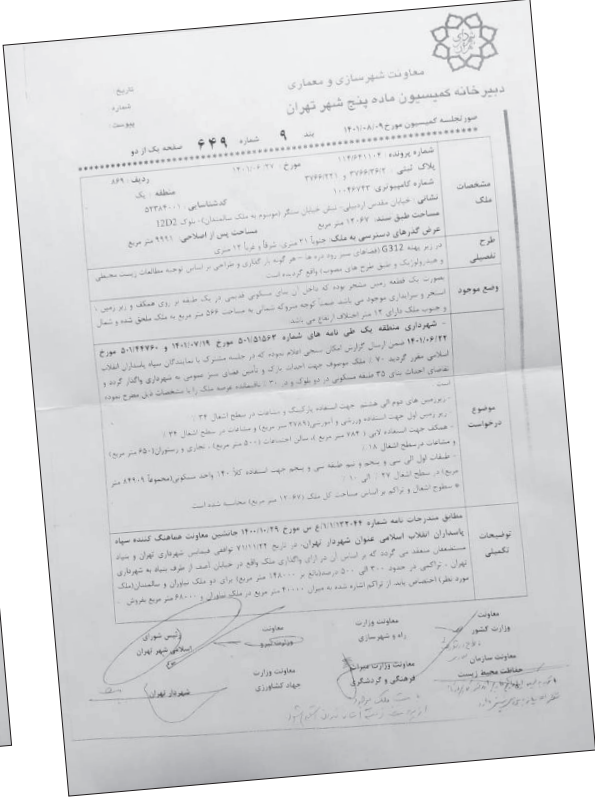 معاونت شهرسازی و معماری
دبیرخانه کمیسیون ماده پنج شهر تهران
تاریخ:
شماره:
پیوست:
صورتجلسه کمیسیون مورخ ۱۴۰۱/۰۸/۰۹ بند ۹ شماره ۶۴۹ صفحه یک از دو
مشخصات ملک
شماره پرونده: ۱۱۴/۶۴۱۱۰۴ مورخ: ۱۴۰۱/۰۶/۲۷ ردیف: ۸۶۹
پلاک ثبتی: ۳۷۶۶/۳۶/۲ و ۳۷۶۶/۲۲۱ منطقه: یک
شماره کامپیوتری: ۱۰۰۴۶۷۲۳ کدشناسایی: ۵۲۳۸۴۰۰۱
نشانی: خیابان مقدس اردبیلی- نبش خیابان سنگر (موسوم به ملک سالمندان)- بلوک 12D2
مساحت طبق سند: ۱۲۰۶۷ متر مربع مساحت پس از اصلاحی: ۹۹۹۱ متر مربع
عرض گذرهای دسترسی به ملک: جنوباً ۲۱ متری، شرقاً و غرباً ۱۲ متری
طرح تفصیلی
در زیر پهنه G312 (فضاهای سبز رود دره ها – هر گونه بارگذاری و طراحی بر اساس توجیه مطالعات زیست محیطی
و هیدرولوژیک و طبق طرح های مصوب) واقع گردیده است
وضع موجود
بصورت یک قطعه زمین مشجر بوده که داخل آن بنای مسکونی قدیمی در یک طبقه بر روی همکف و زیر زمین ،
استخر و سرایداری موجود می باشد. ضمناً کوچه متروکه شمالی به مساحت ۵۶۶ متر مربع به ملک ملحق شده و شمال
و جنوب ملک دارای ۱۲ متر اختلاف ارتفاع می باشد.
موضوع درخواست
- شهرداری منطقه یک طی نامه های شماره ۵۰۱/۵۱۵۶۳ مورخ ۱۴۰۱/۰۷/۱۹ و ۵۰۱/۴۴۷۶۰ مورخ
۱۴۰۱/۰۶/۲۲ ضمن ارسال گزارش امکان سنجی اعلام نموده که در جلسه مشترک با نمایندگان سپاه پاسداران انقلاب
اسلامی مقرر گردید ۷۰٪ ملک موصوف جهت احداث پارک و تأمین فضای سبز عمومی به شهرداری واگذار گردد و
تقاضای احداث بنای ۳۵ طبقه مسکونی در دو بلوک و در ۳۰٪ باقیمانده عرصه ملک را با مشخصات ذیل مطرح نموده
است
- زیرزمین های دوم الی هشتم جهت استفاده پارکینگ و مشاعات در سطح اشغال ۳۴٪
- زیر زمین اول جهت استفاده ورزشی و آموزشی (۲۷۸۹ متر مربع) و مشاعات در سطح اشغال ۳۴٪
- همکف جهت استفاده لابی (۷۸۴ متر مربع)، سالن اجتماعات (۵۰۰ متر مربع)، تجاری و رستوران (۶۵۰ متر مربع)
و مشاعات در سطح اشغال ۱۸٪
- طبقات اول الی سی و پنجم و نیم طبقه سی و پنجم جهت استفاده کلاً ۱۴۰ واحد مسکونی (مجموعاً ۴۴۹۰۹ متر
مربع) در سطح اشغال ۲۷٪ الی ۱۰٪
* سطوح اشغال و تراکم بر اساس مساحت کل ملک (۱۲۰۶۷ متر مربع) محاسبه شده است.
توضیحات تکمیلی
مطابق مندرجات نامه شماره ۱/۱/۱۳۲۰۴۴/ع س مورخ ۱۴۰۰/۱۰/۲۹ جانشین معاونت هماهنگ کننده سپاه
پاسداران انقلاب اسلامی عنوان شهردار تهران، در تاریخ ۷۱/۱۱/۲۲ توافقی فیمابین شهرداری تهران و سپاه
مستضعفان منعقد می گردد که بر اساس آن در ازای واگذاری ملک واقع در خیابان آصف از طرف بنیاد به شهرداری
تهران ، تراکمی در حدود ۳۰۰ الی ۵۰۰ درصد (بالغ بر ۴۸۰۰۰ متر مربع) برای دو ملک نیاوران و سالمندان (ملک
مورد نظر) اختصاص یابد. از تراکم اشاره شده به میزان ۴۰۰۰۰ متر مربع در ملک نیاوران و ۶۸۰۰۰ متر مربع بفروش
معاونت وزارت کشور
معاونت وزارت راه و شهرسازی
معاونت وزارت نیرو
رئیس شورای اسلامی شهر تهران
معاونت سازمان حفاظت محیط زیست
معاونت وزارت میراث فرهنگی و گردشگری
معاونت وزارت جهاد کشاورزی
شهردار تهران